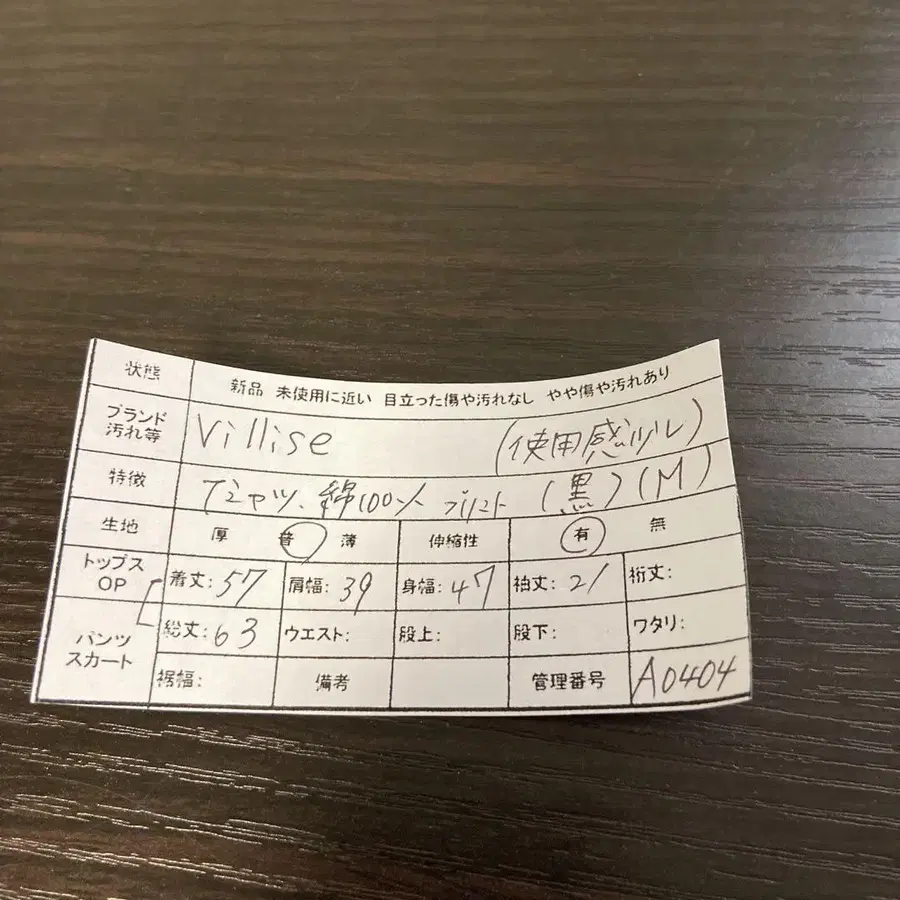 状態 新品 未使用に近い 目立った傷や汚れなし やや傷や汚れあり
ブランド 汚れ等 Villise (使用感少し)
特徴 Tシャツ、綿100% プリント (黒)(M)
生地 厚 普 薄 伸縮性 有 無
トップス OP 着丈:57 肩幅:39 身幅:47 袖丈:21 裄丈:
パンツ スカート 総丈:63 ウエスト: 股上: 股下: ワタリ:
裾幅: 備考 管理番号 A0404